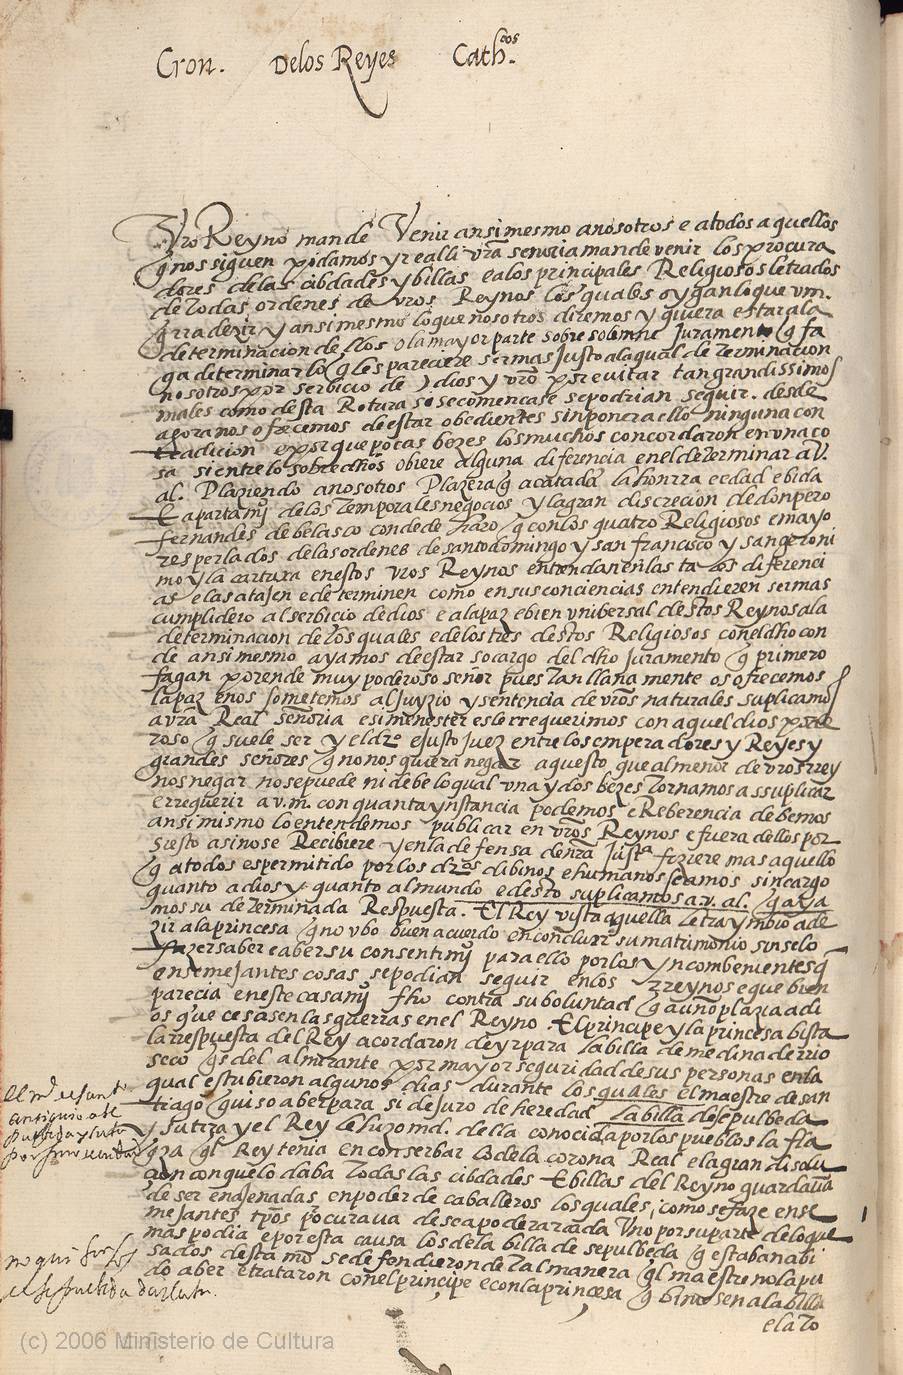 Cron. Delos Reyes Cath.cos
Vro Reyno mande Venir ansi mesmo anosotros e atodos aquellos
q̃ nos siguen podamos yr e alli vr̃a señoria mande venir los procura
dores de las cibdades y billas e a los principales Religiosos letrados
de todas ordenes de vros Reynos los quales oygan lo que v.m.
q̃rra dezir y ansi mesmo lo que nosotros diremos y quiera estar a la
determinacion dellos o la mayor parte sobre solemne Juramento q̃ fa
ga determinar lo q̃ les pareciere ser mas justo a la qual determination
nosotros por serbicio de dios y vr̃o por evitar tan grandissimos
males como desta Rotura si se començase se podrian seguir. desde
agora nos ofrecemos de estar obedientes sin poner a ello ninguna con
tradicion e porque pocas bezes los muchos concordaron en vna co
sa si entre lo sobre dhos obiere alguna diferencia en el determinar a V.
al. Plaziendo anosotros Plazera q̃ acatada la honrra e edad e bida
E apartamj̃ de los temporales negocios y la gran discrecion de don pero
fernandes de belasco conde de haro q̃ con los quatro Religiosos e mayo
res perlados de las ordenes de santo domingo y san francisco y san geroni
mo y la cartuxa en estos vros Reynos entendan en las ta les diferenci
as e las atajen e determinen como en sus conciencias entendieren ser mas
cumplidero al serbicio de dios e a la paz e bien vnibersal destos Reynos a la
determinacion de los quales e de los tres destos Religiosos con el dho con
de ansi mesmo ayamos de estar so cargo del dho juramento q̃ primero
fagan por ende muy poderoso señor pues tan llana mente os ofrecemos
la paz e nos sometemos al Juyzio y sentencia de vr̃os naturales suplicamos
a vr̃a Real señoria e si menester es le rrequerimos con aquel dios pode
roso q̃ suele ser y el dr̃o e justo juez entre los emperadores y Reyes y
grandes señores q̃ no nos quiera negar aquesto que al menor de vros rrey
nos negar no se puede ni debe lo qual vna y dos bezes tornamos a ssuplicar
e rrequerir a v.m. con quanta ynstancia podemos e Reberencia debemos
ansi mismo lo entendemos publicar en vr̃os Reynos e fuera dellos por
si esto asi no se Recibiere y en la defensa de nr̃a Justa fiziere mas aquello
q̃ a todos es permitido por los dr̃os dibinos e humanos seamos sin cargo
quanto a dios y quanto al mundo e desto suplicamos a v. al. q̃ aya
mos su determinada Respuesta. El Rey vista aquella letra ymbio a de
zir a la princesa q̃ no vbo buen acuerdo en concluir su matrimonio sin se lo
fazer saber e aber su consentimj̃ para ello por los ynconbenientes q̃
en semejantes cosas se podian seguir en los Reynos e que bien
parecia en este casamj̃ fho contra su boluntad q̃ a uño plazia a di
os que cesasen las guerras en el Reyno. El principe y la princesa bista
la rrespuesta del Rey acordaron de yr para la billa de medina de rrio
seco q̃ es del almirante por mayor seguridad de sus personas en la
qual estubieron algunos dias durante los quales el maestre de san
tiago quiso aber para si de juro de heredad la billa de sepulbeda
y su tierra y el Rey le hizo md. della conocida por los pueblos la fla
q̃za q̃l Rey tenia en conserbar lo de la corona Real e la gran disolu
çion con que lo daba todas las cibdades E billas del Reyno guardaua
de ser enajenadas en poder de caballeros los quales como se faze en se
mejantes tpõs procuraua de se apoderar cada Vno por su parte de lo que
mas podia e por esta causa los de la billa de sepulbeda q̃ estaban abi
sados desta mr̃a se defendieron de tal manera q̃l maestre no la pu
do aber e trataron con el principe e con la princesa q̃ biniesen a la billa
e la to